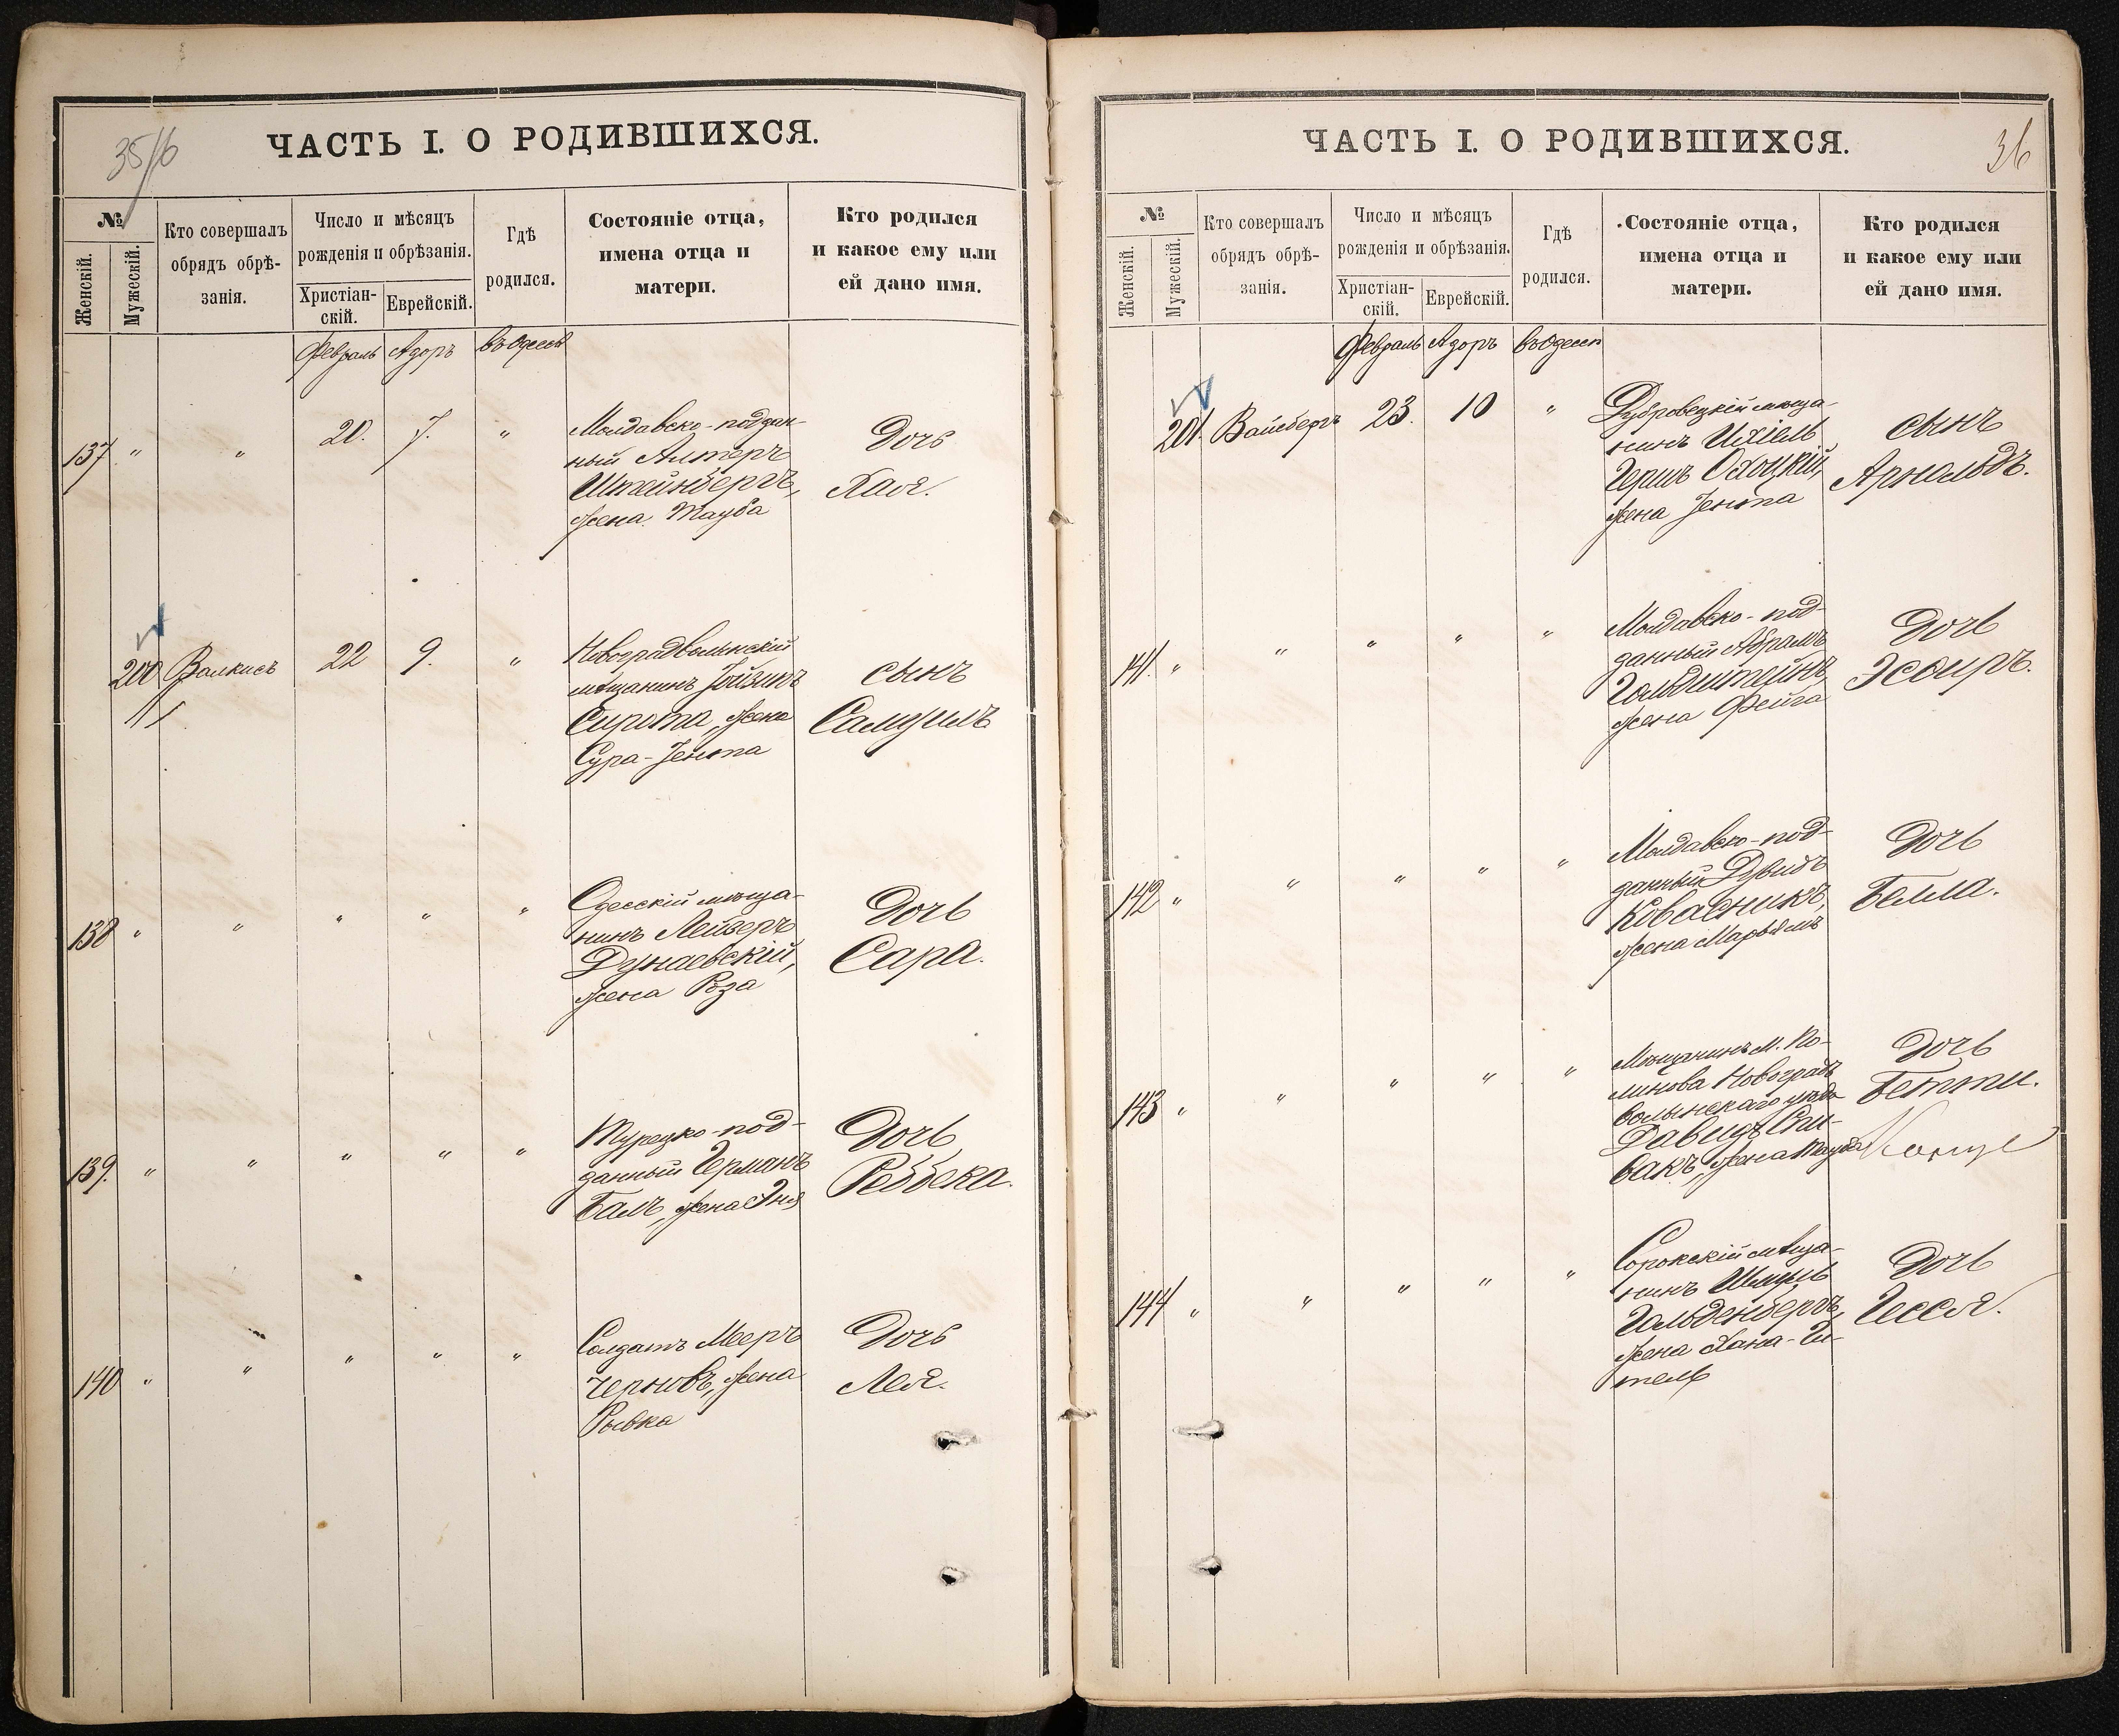 35/16
ЧАСТЬ I. О РОДИВШИХСЯ.
№
Женскій.
Мужескій.
Кто совершалъ
обрядъ обрѣ-
занія.
Число и мѣсяцъ
рожденія и обрѣзанія.
Христіан-
скій.
Еврейскій.
Гдѣ
родился.
Состояніе отца,
имена отца и
матери.
Кто родился
и какое ему или
ей дано имя.
Февраль Адоръ въ Одессѣ
137 " " 20. 7. "
Молдавско-поддан-
ный Алтеръ
Штейнбергъ,
жена Тауба
Дочь
Хая.
200 Валкисъ 22 9. "
Новоградволынскій
мѣщанинъ
Сирота, жена
Сура-Генопа
сынъ
Самуилъ
138 " " " " "
Одесскій мѣща-
нинъ Лейзеръ
Дунаевскій,
жена Роза
Дочь
Сара.
139. " " " " "
Турецко-под-
данный Германъ
Балъ, жена Эня
Дочь
Реббека.
140 " " " " "
Солдатъ Мееръ
Черновъ, жена
Рывка
Дочь
Лея.
ЧАСТЬ I. О РОДИВШИХСЯ.
36
№
Женскій.
Мужескій.
Кто совершалъ
обрядъ обрѣ-
занія.
Число и мѣсяцъ
рожденія и обрѣзанія.
Христіан-
скій.
Еврейскій.
Гдѣ
родился.
Состояніе отца,
имена отца и
матери.
Кто родился
и какое ему или
ей дано имя.
Февраль Адоръ въ Одессѣ
201. Вайсбергъ 23. 10 "
Дубровецкій мѣща-
нинъ Ихіель
Гершъ Охоцкій,
жена Генопа
сынъ
Арнольдъ.
141. " " " " "
Молдавско-под-
данный Абрамъ
Гольдштейнъ,
жена Фейга
Дочь
Эсѳиръ.
142 " " " " "
Молдавско-под-
данный Двидъ
Ковасникъ,
жена Марьямъ
Дочь
Белла.
143 " " " " "
Мѣщанинъ м. Ко-
линова Новоградъ
волынскаго уѣзда
Давидъ Спи-
вакъ, жена Тауба
Дочь
Бетти.
144 " " " " "
Сорокскій мѣща-
нинъ Шмуль
Гольденбергъ,
жена Хана-Ги-
тель
Дочь
Гесся.